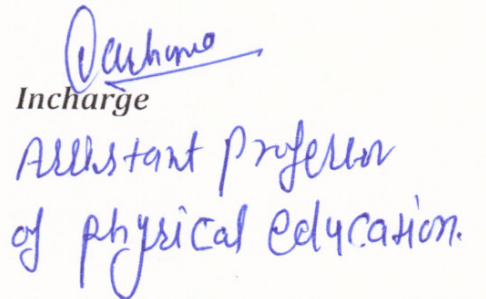 Incharge
Assistant Professor
of physical education.